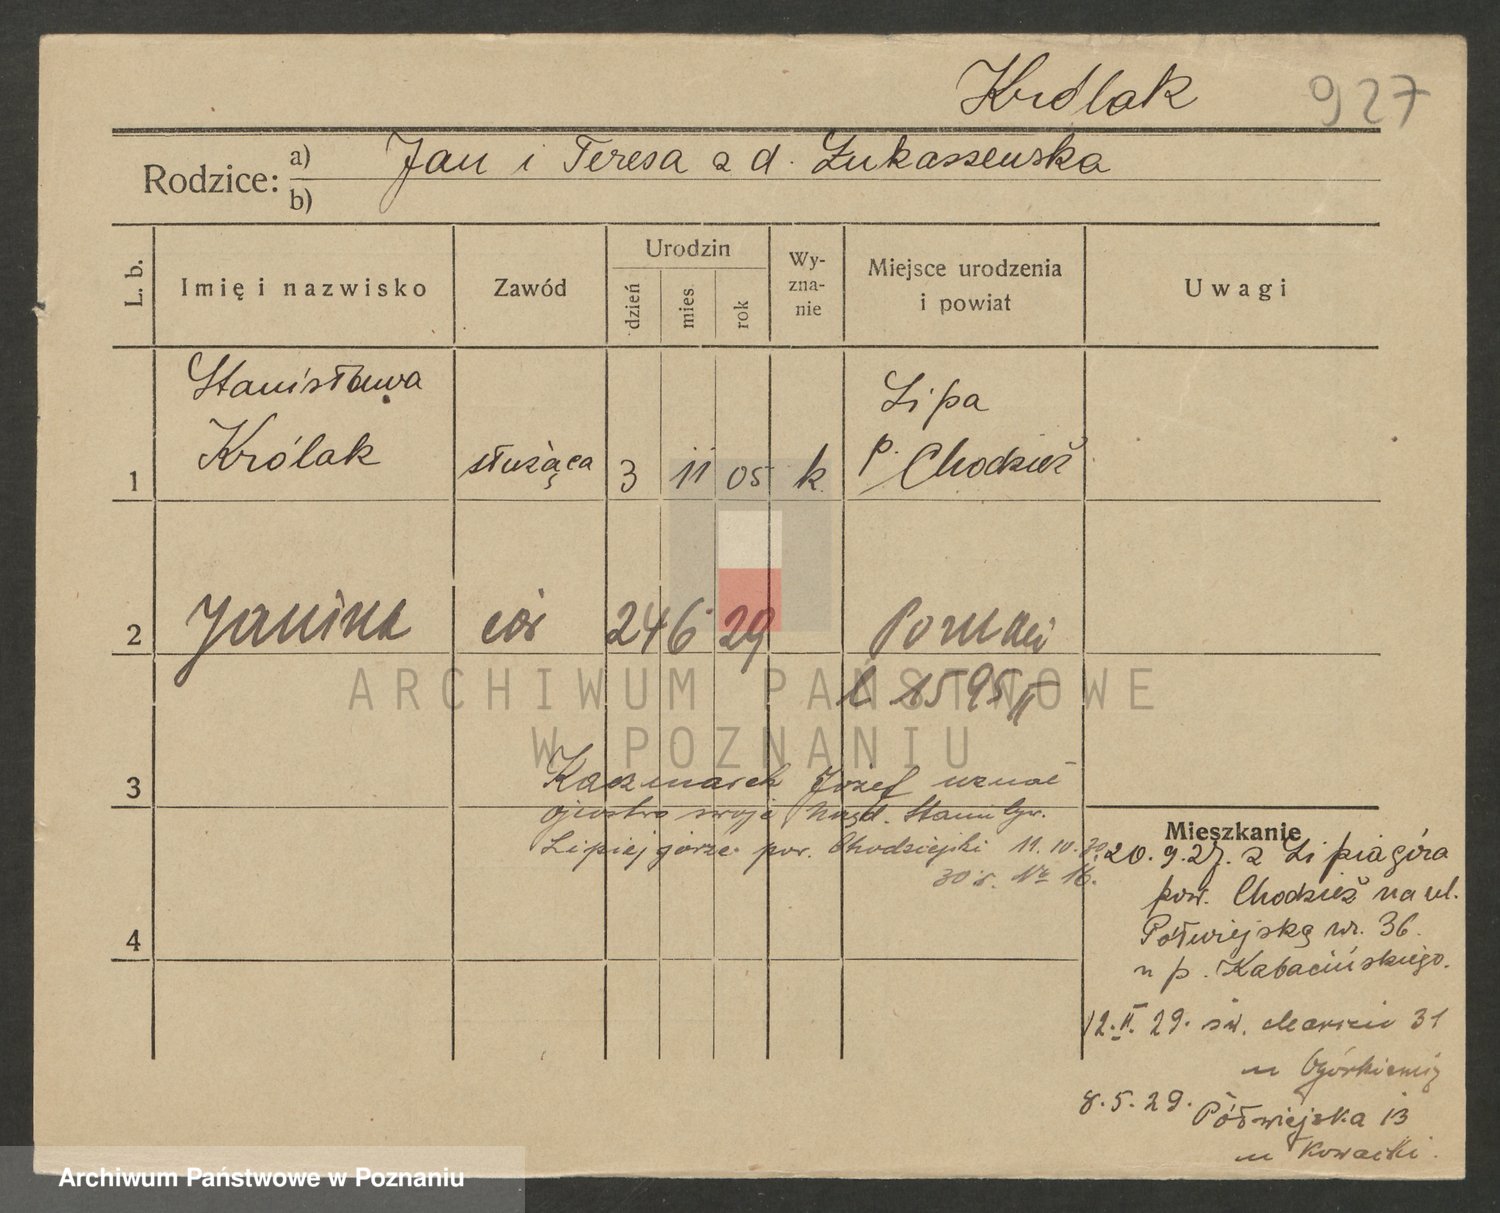 Królak 927
Rodzice: a) Jan i Teresa z d. Łukaszewska
b)
L. b.
Imię i nazwisko
Zawód
Urodzin
dzień
mies
rok
Wy-
zna-
nie
Miejsce urodzenia
i powiat
Uwagi
Stanisława
Królak
służąca
1
3 11 05 k
Lipa
p. Chodzież
2 Janina cór 24 6 29 Poznań
l 1595 II
ARCHIWUM PAŃSTWOWE
W POZNANIU
3
Kaczmarek Józef uznał
ojcostwo swoje
Lipiejgórze pow. Chodzieski 11.10.30
30 r. Nr 16.
4
Mieszkanie
20.9.27. z Lipiagóra
pow. Chodzież na ul.
Półwiejską nr. 36.
u p. Kabacińskiego.
12.II.29. św. Marcin 31
u
8.5.29. Półwiejska 13
u
Archiwum Państwowe w Poznaniu